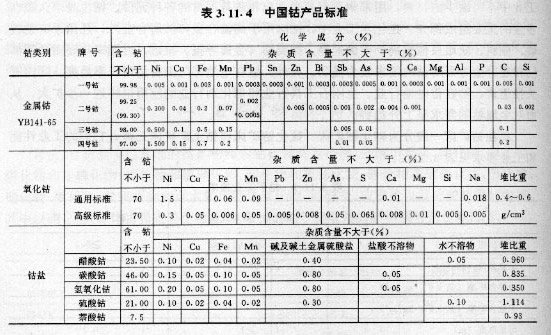 表 3·11·4 中国钴产品标准
钴类别 牌号 化学成分(%)
含钴 不小于 杂质含量不大于(%)
Ni Cu Fe Mn Pb Sn Zn Bi Sb As S Ca Mg Al P C Si
金属钴 YB141-65
一号钴 99.98 0.005 0.001 0.003 0.001 0.0003 0.0003 0.001 0.0003 0.0003 0.0003 0.001 0.001 0.001 0.005 0.001
二号钴 99.25 (99.30) 0.300 0.04 0.2 0.07 0.002 0.0005 0.005 0.0005 0.001 0.002 0.004 0.001 0.03 0.002
三号钴 98.00 0.500 0.1 0.5 0.15 0.005 0.01 0.1
四号钴 97.00 1.500 0.15 0.7 0.2 0.01 0.05 0.2
氧化钴
含钴 不小于 杂质含量不大于(%)
Ni Cu Fe Mn Pb Zn As S Ca Mg Si Na 堆比重
通用标准 70 1.5 0.06 0.09 — — — — 0.01 — — 0.018 0.4~0.6
高级标准 70 0.3 0.05 0.006 0.05 0.005 0.008 0.05 0.065 0.008 0.01 0.005 0.005 g/cm³
钴盐
含钴 不小于 杂质含量不大于(%)
Ni Cu Fe Mn 碱及碱土金属硫酸盐 盐酸不溶物 水不溶物 堆比重
醋酸钴 23.50 0.10 0.02 0.04 0.02 0.40 0.05 0.960
碳酸钴 46.00 0.15 0.05 0.10 0.05 0.80 0.05 0.835
氢氧化钴 61.00 0.20 0.05 0.10 0.05 0.80 0.05 0.350
硫酸钴 21.00 0.10 0.02 0.04 0.02 0.30 0.10 1.114
萘酸钴 7.5 0.93